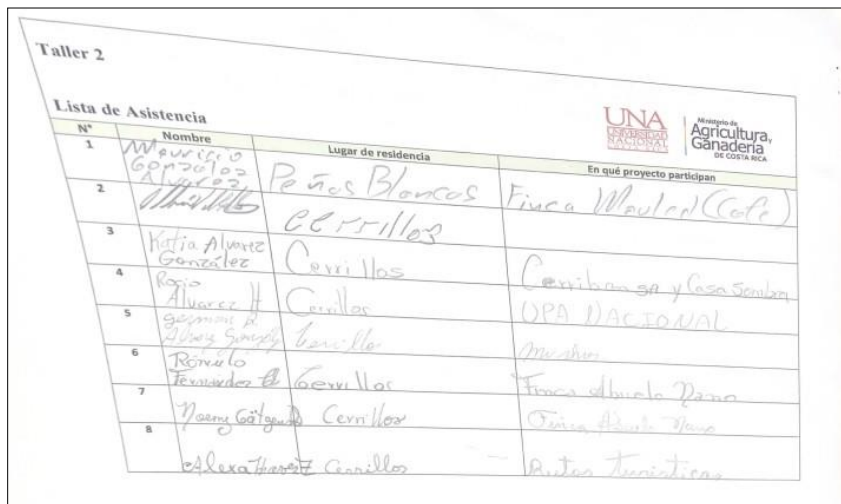 Taller 2
Lista de Asistencia
UNA
UNIVERSIDAD
NACIONAL
Ministerio de
Agricultura,
Ganadería
DE COSTA RICA
N° Nombre Lugar de residencia En qué proyecto participan
1 Mauricio González Alvarez Peñas Blancas Finca (Cafe)
2 Cerrillos
3 Katia Alvarez González Cerrillos y Casa Sombra
4 Rocio Alvarez H Cerrillos UPA NACIONAL
5 german Cerrillos
6 Rómulo Fernández Cerrillos Finca Abuelo Nano
7 Noemy Cerrillos Finca Abuelo Nano
8 Alexa Cerrillos Rutas turisticas